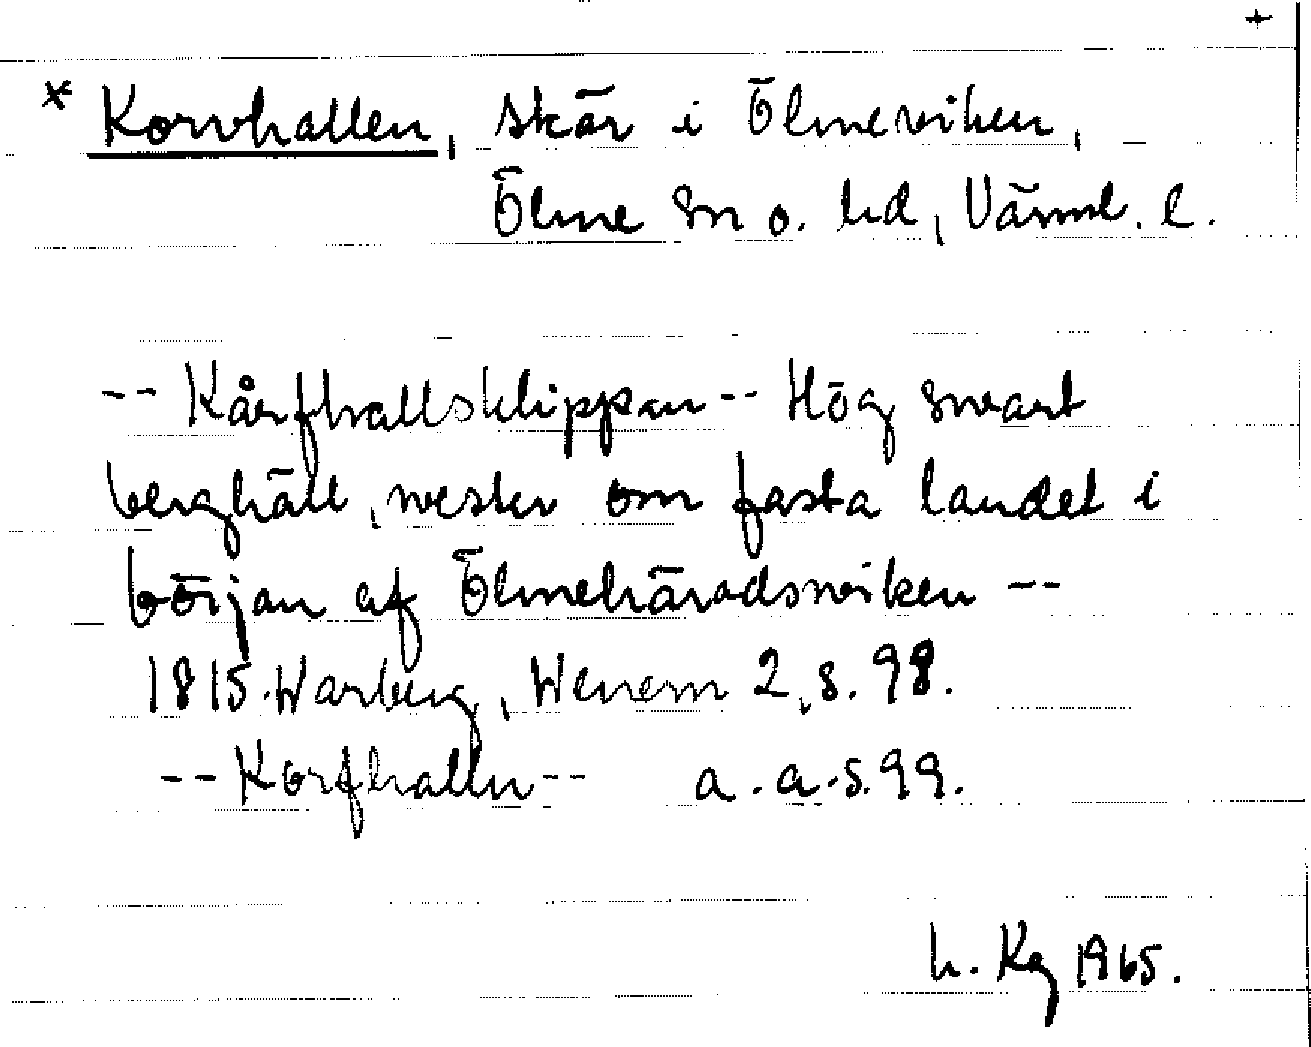 +
* Korvhallen, skär i Ölmeviken,
Ölme sn o. hd, Värml. l.
-- Kårfhallsklippan -- Hög svart
berghäll, wester om fasta landet i
början af Ölmehäradsviken --
1815. Warberg, Wenern 2, s. 98.
-- Korfhallen -- a. a. s. 99.
h. Kg 1965.